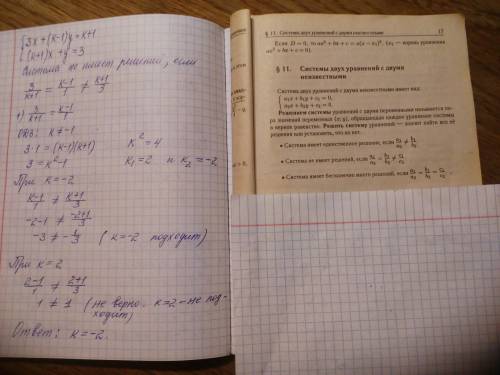 {3x+(k-1)y=k+1
{(k+1)x+y=3
Система не имеет решений, если
3/(k+1) = (k-1)/1 ≠ (k+1)/3
1) 3/(k+1) = (k-1)/1
ОДЗ: k≠-1
3·1=(k-1)(k+1)
3=k²-1
k²=4
k₁=2 и k₂=-2
При k=-2
(k-1)/1 ≠ (k+1)/3
-2-1 ≠ (-2+1)/3
-3 ≠ -1/3 (k=-2 подходит)
При k=2
(2-1)/1 ≠ (2+1)/3
1 ≠ 1 (не верно. k=2 - не под-
ходит)
Ответ: k=-2.
§ 11. Системы двух уравнений с двумя неизвестными 17
Если D = 0, то ax² + bx + c = a(x − x₁)², (x₁ — корень уравнения
ax² + bx + c = 0).
§ 11. Системы двух уравнений с двумя
неизвестными
Система двух уравнений с двумя неизвестными имеет вид:
{a₁x + b₁y + c₁ = 0,
{a₂x + b₂y + c₂ = 0.
Решением системы уравнений с двумя переменными называется па-
ра значений переменных (x; y), обращающая каждое уравнение системы
в верное равенство. Решить систему уравнений — значит найти все её
решения или установить, что их нет.
• Система имеет единственное решение, если a₁/a₂ ≠ b₁/b₂.
• Система не имеет решений, если a₁/a₂ = b₁/b₂ ≠ c₁/c₂.
• Система имеет бесконечно много решений, если a₁/a₂ = b₁/b₂ = c₁/c₂.